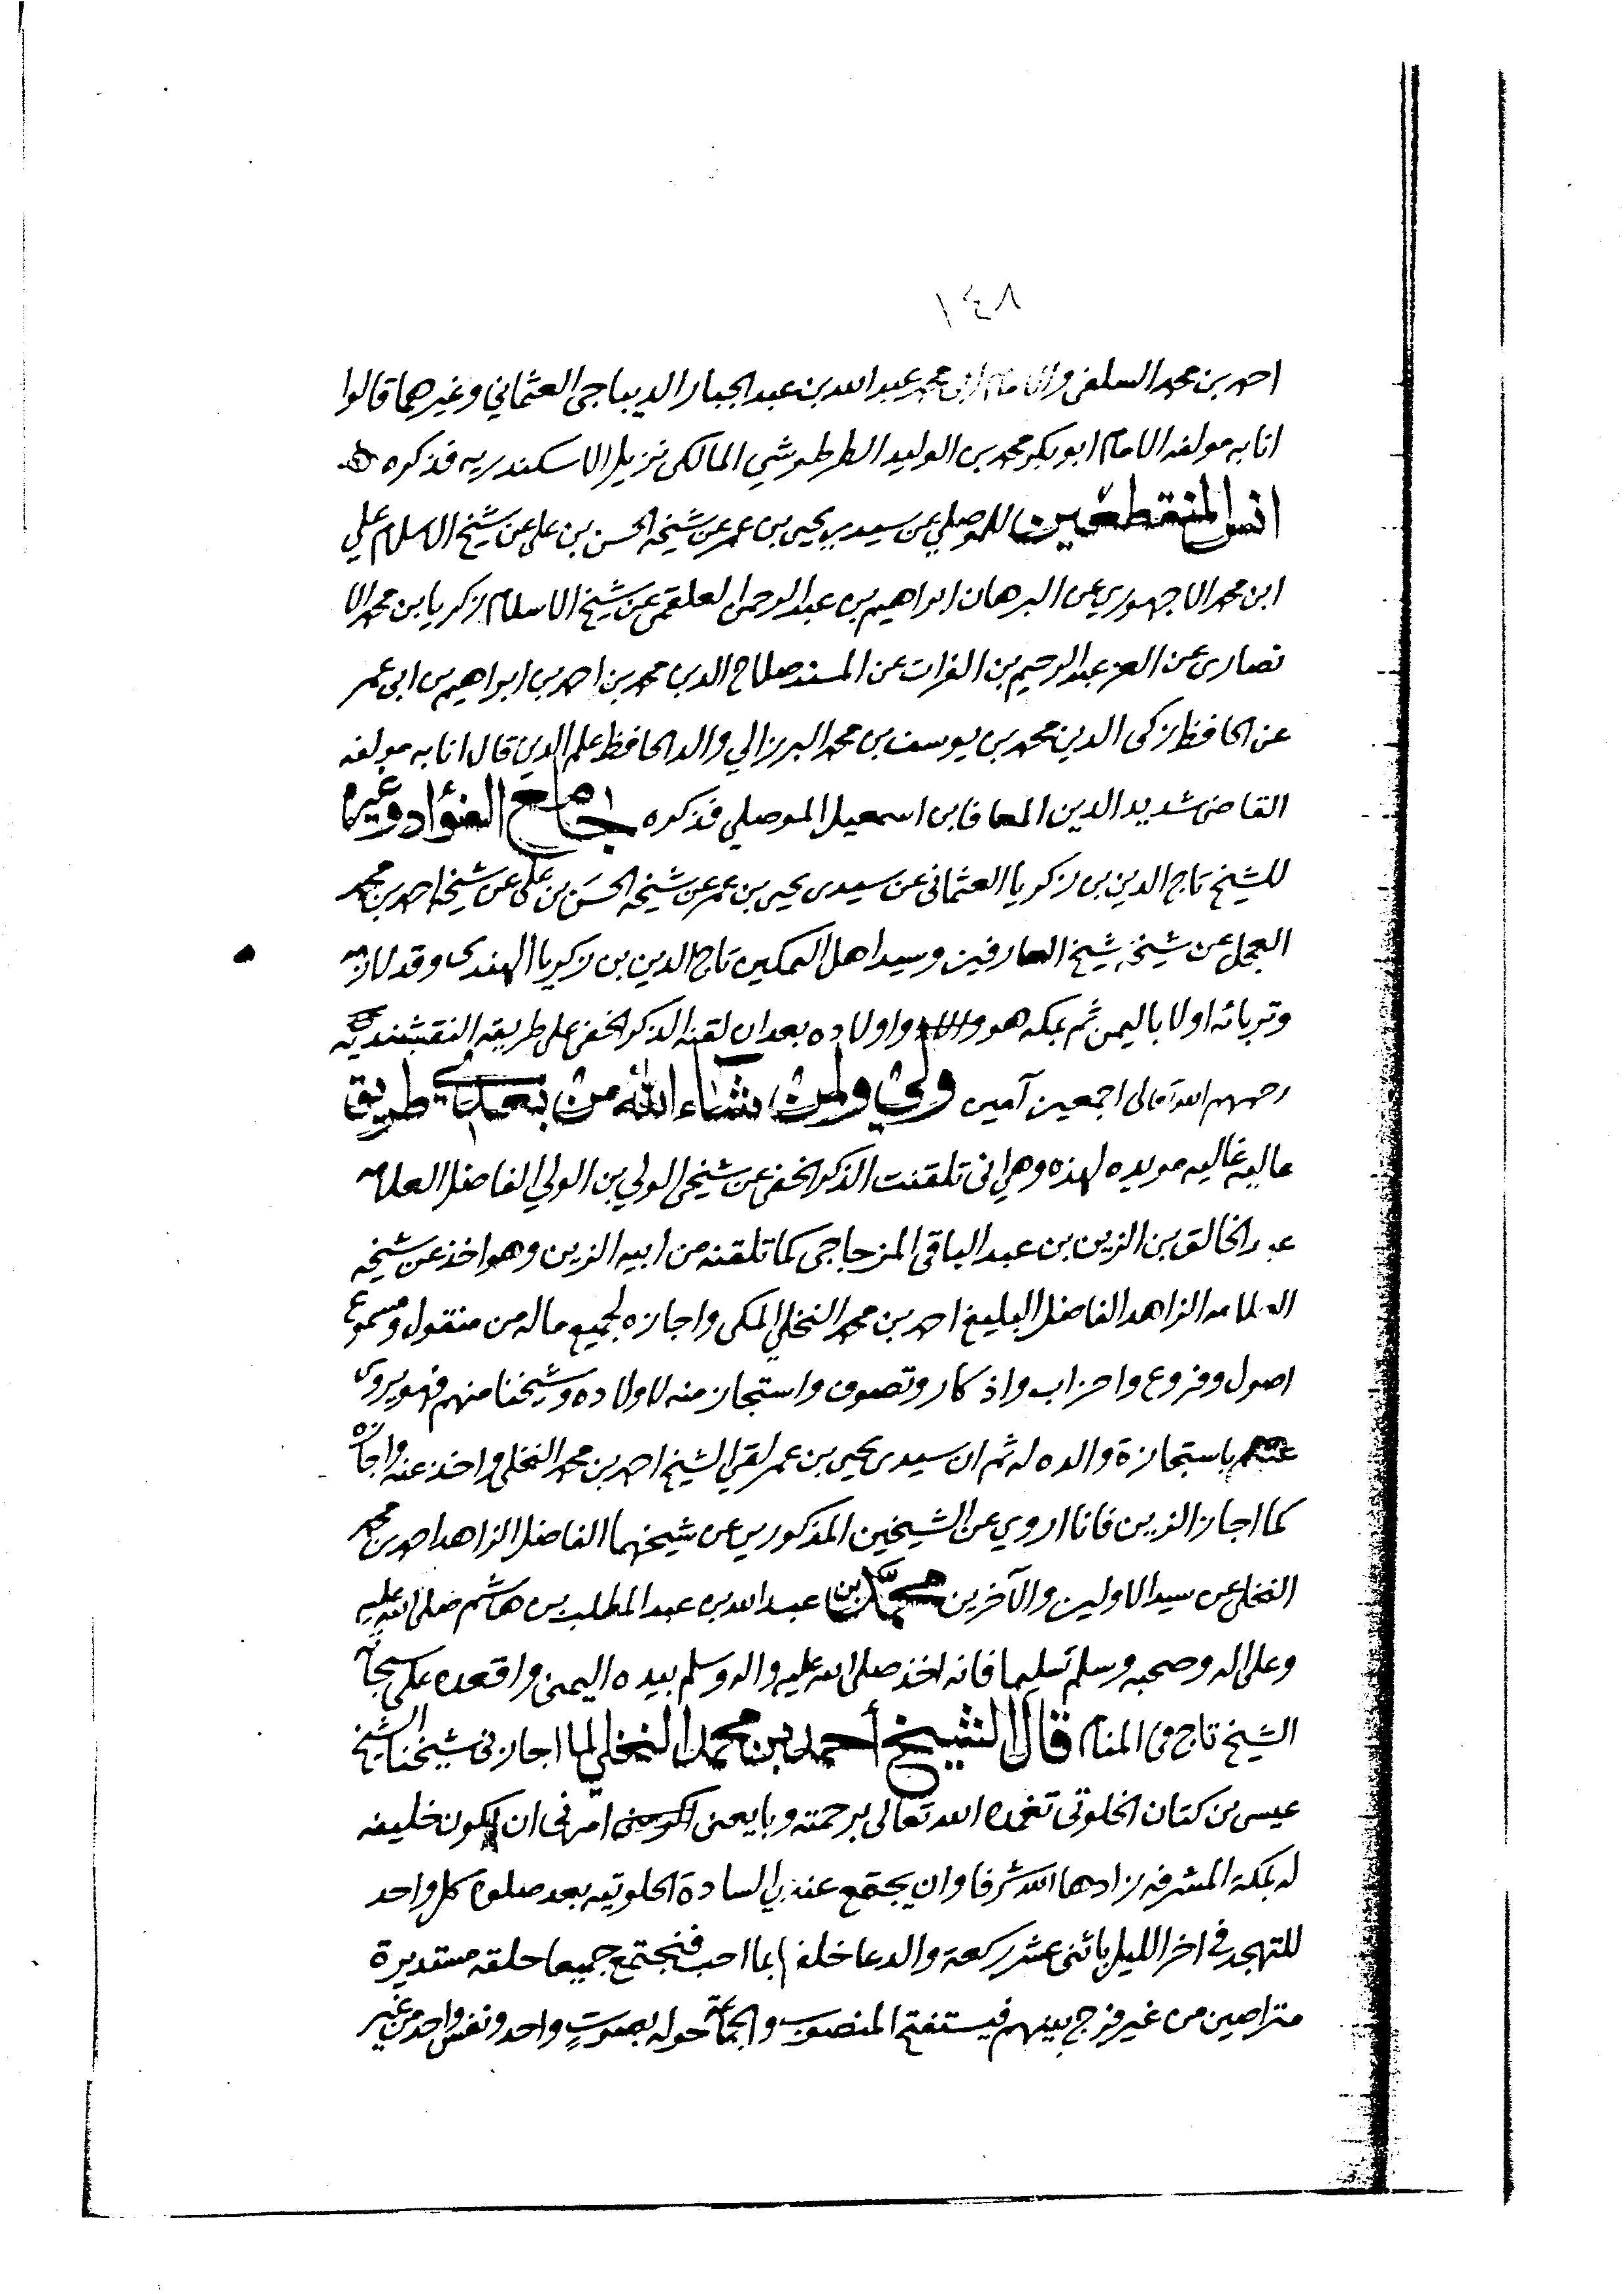 ١٤٨
احمد بن محمد السلفي والامام ابي محمد عبد الله بن عبد الجبار الديباجي العثماني وغيرهما قالوا
انا به مولفه الامام ابو بكر محمد بن الوليد الطرطوشي المالكي نزيل الاسكندريه فذكره
انس المنقطعين للموصلي عن سيدي يحيى بن عمر عن شيخه الحسن بن علي عن شيخ الاسلام علي
ابن محمد الاجهوري عن البرهان ابراهيم بن عبد الرحمن العلقمي عن شيخ الاسلام زكريا بن محمد الا
نصاري عن العز عبد الرحيم بن الفرات عن المسند صلاح الدين محمد بن احمد بن ابراهيم بن ابي عمر
عن الحافظ زكي الدين محمد بن يوسف بن محمد البرزالي والد الحافظ علم الدين قال انا به مولفه
القاضي شديد الدين المعافا بن اسمعيل الموصلي فذكره جامع الفؤاد وغيرها
للشيخ تاج الدين بن زكريا العثماني عن سيدي يحيى بن عمر عن شيخه الحسن بن علي عن شيخه احمد بن محمد
العجل عن شيخه شيخ العارفين وسيد اهل التمكين تاج الدين بن زكريا الهندي وقد لازمه
وتربا له اولا باليمن ثم بمكه هو واولاده بعد ان لقنه الذكر الخفي على طريقه النقشبنديه
رحمهم الله تعالى اجمعين آمين ولي ولمن شاء الله من بعدي طريق
عاليه غاليه مويده لهذه وهي اني تلقنت الذكر الخفي عن شيخي الولي بن الولي الفاضل العلامه
عبد الخالق بن الزين بن عبد الباقي المزجاجي كما تلقنه من ابيه الزين وهو اخذ عن شيخه
العلامه الزاهد الفاضل البليغ احمد بن محمد النخلي المكي واجازه لجميع ماله من منقول ومسموع
اصول وفروع واحزاب واذكار وتصوف واستجاز منه لاولاده وشيخنا منهم فهو يروي
عنه باستجازة والده له ثم ان سيدي يحيى بن عمر لقي الشيخ احمد بن محمد النخلي واخذ عنه واجازه
كما اجاز الزين فانا اروي عن الشيخين المذكورين عن شيخهما الفاضل الزاهد احمد بن محمد
النخلي عن سيد الاولين والآخرين محمد بن عبد الله بن عبد المطلب بن هاشم صلى الله عليه
وعلى اله وصحبه وسلم تسليما فانه اخذ صلى الله عليه واله وسلم بيده اليمنى واقعده على سجادة
الشيخ تاج في المنام قال الشيخ أحمد بن محمد النخلي لما اجازني شيخنا الشيخ
عيسى بن كنان الخلوتي تغمده الله تعالى برحمته وبايعني امرني ان اكون خليفه
له بمكة المشرفه زادها الله شرفا وان يجتمع عندي السادة الخلوتيه بعد صلوة كل واحد
للتهجد في اخر الليل باثني عشر ركعة والدعا خلفها بما احب فنجتمع جميعا حلقه مستديرة
متراصين من غير فرج بينهم فيستفتح المنصوب والجماعة حوله بصوت واحد ونفس واحد من غير